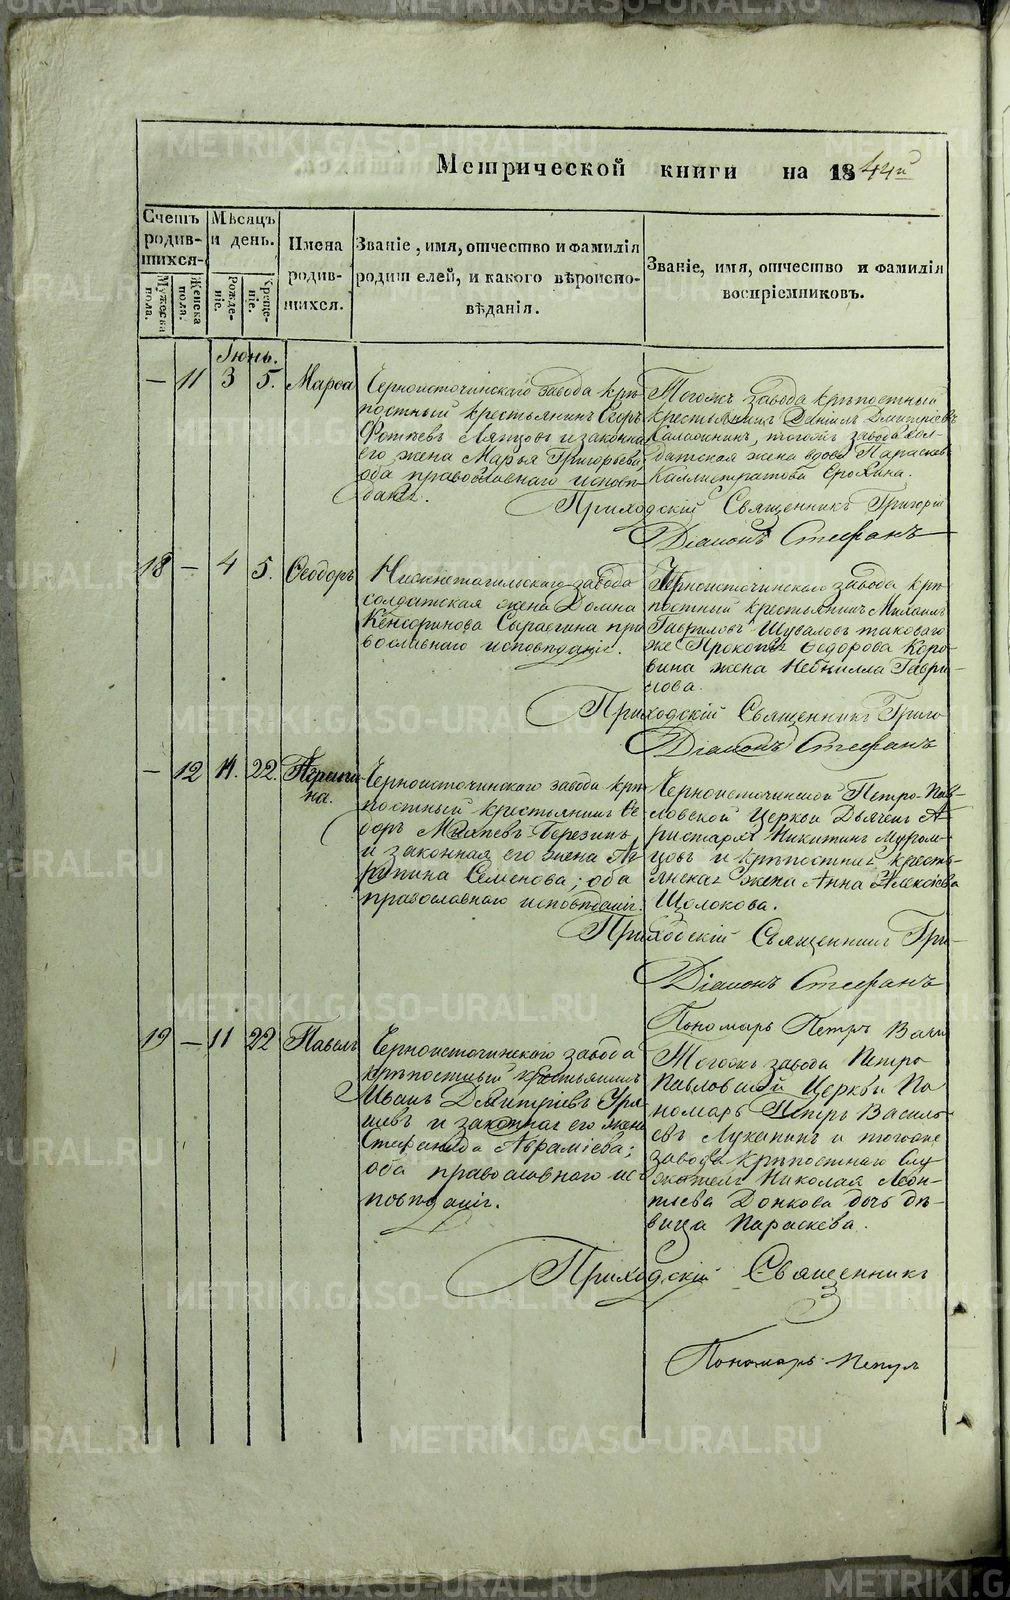 Метрической книги на 1844й
Счетъ родившихся.
Мѣсяцъ и день.
Имена родившихся.
Званіе, имя, отчество и фамилія родителей, и какого вѣроисповѣданія.
Званіе, имя, отчество и фамилія воспріемниковъ.
Мужеска пола.
Женска пола.
Рожденіе.
Крещеніе.
Іюнь.
— 11 3 5. Марѳа
Черноисточинскаго завода крѣ-
постный крестьянинъ
Фотіевъ и законная
его жена Марья Григорьева,
оба православнаго исповѣ-
данія.
Тогожъ завода крѣпостный
крестьянинъ Даніилъ Дмитріевъ
тогожъ завода сол-
датская жена вдова Параскева
Каллистратова Ерохина.
Приходскій Священникъ Григорій
Діаконъ Стефанъ
18 — 4 5. Ѳеодоръ
Нижнетагильскаго завода
солдатская жена Домна
Кенсоринова пра
вославнаго исповѣданія.
Черноисточинскаго завода крѣ-
постный крестьянинъ Михаилъ
Гавриловъ Шуваловъ таковаго
же Прокопія Ѳедорова Коро-
вина жена Неонилла Гаври-
лова.
Приходскій Священникъ Григо
Діаконъ Стефанъ
— 12 14. 22. Агрипи
на.
Черноисточинскаго завода крѣ-
постный крестьянинъ Ѳе-
доръ Березинъ
и законная его жена Аг
рипина Семенова; оба
православнаго исповѣданія.
Черноисточинской Петро-Пав-
ловской Церкви Дьячекъ А-
ристархъ Никитинъ Муром-
цовъ и крѣпостная кресть-
янская жена Анна Алексѣева
Щолокова.
Приходскій Священникъ Гри-
Діаконъ Стефанъ
Пономарь Петръ Васи
19 — 11 22 Павелъ
Черноисточинскаго завода
крѣпостный крестьянинъ
Иванъ Дмитріевъ
и законная его жена
Стефанида Авраміева;
оба православнаго ис-
повѣданія.
Тогожъ завода Петро
Павловской Церкви По
номарь Петръ Василь
евъ Луканинъ и тогоже
завода крѣпостнаго Слу
жителя Николая Леон-
тіева Донкова дочь дѣ-
вица Параскева.
Приходскій Священникъ
Пономарь Петръ
METRIKI.GASO-URAL.RU